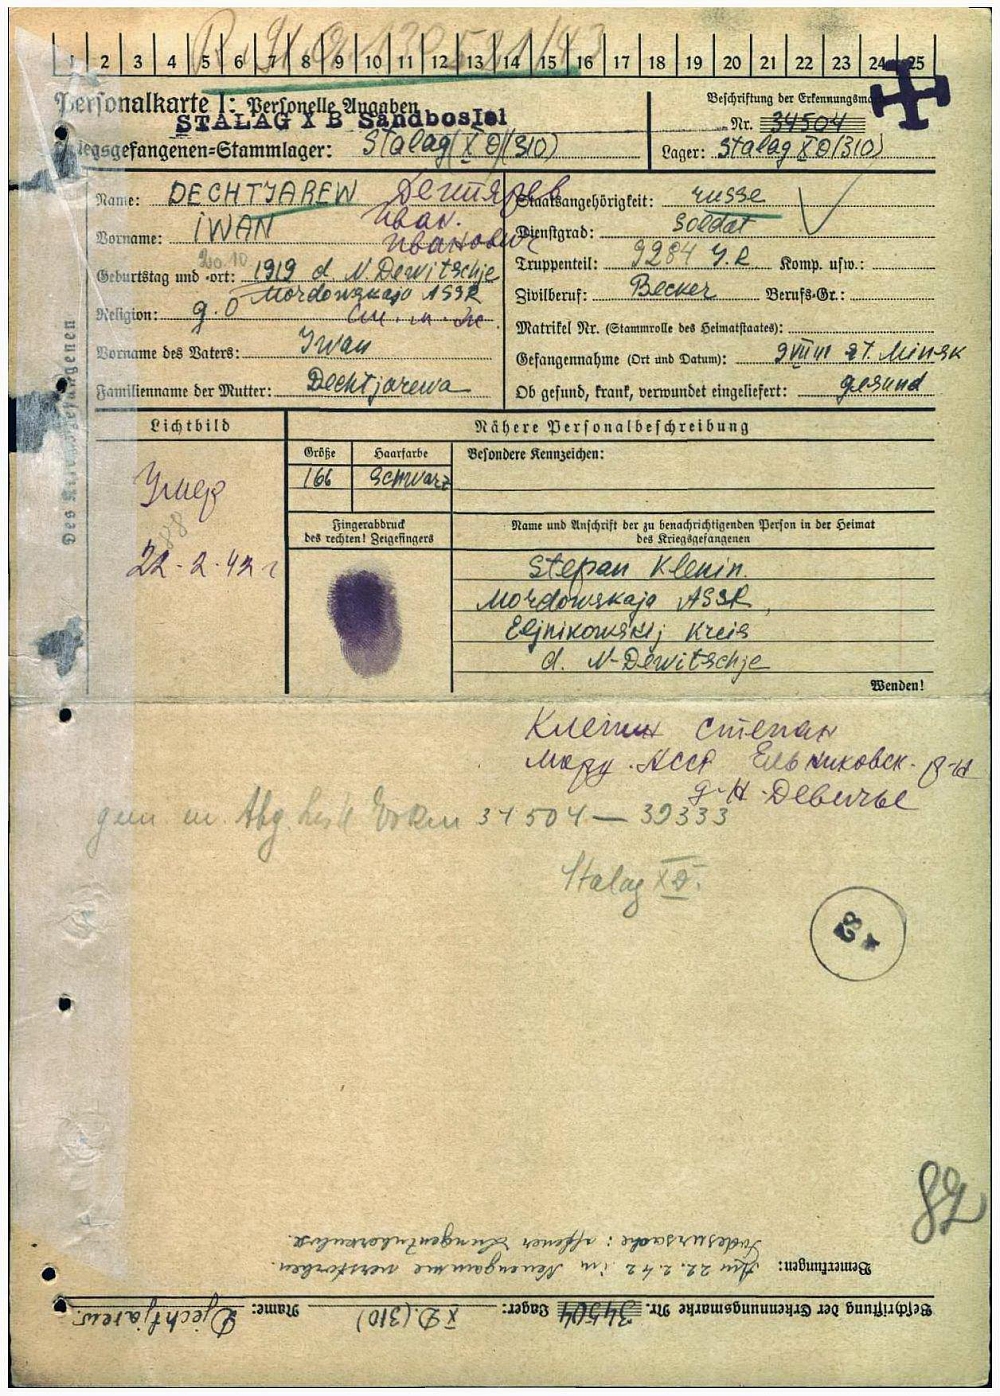 R.
1 2 3 4 5 6 7 8 9 10 11 12 13 14 15 16 17 18 19 20 21 22 23 24 25
Personalkarte I: Personelle Angaben
STALAG X B Sandbostel
Kriegsgefangenen=Stammlager: Stalag X D (310)
Beschriftung der Erkennungsmarke
Nr. 34504
Lager: Stalag X D (310)
Des Kriegsgefangenen
Name: DECHTJAREW Дегтярев
Vorname: IWAN Иван Иванович
Geburtstag und =ort: 20.10 1919 d. N. Dewitschje
Mordowskaja ASSR
Religion: g. O
Vorname des Vaters: Iwan
Familienname der Mutter: Dechtjarewa
Staatsangehörigkeit: russe
Dienstgrad: Soldat
Truppenteil: 9284 I. R Komp. usw.:
Zivilberuf: Becker Berufs=Gr.:
Matrikel Nr. (Stammrolle des Heimatstaates):
Gefangennahme (Ort und Datum): 9 VII 41 Minsk
Ob gesund, krank, verwundet eingeliefert: gesund
Lichtbild
Умер
88
22-2-42 г
Nähere Personalbeschreibung
Größe Haarfarbe Besondere Kennzeichen:
166 Schwarz
Fingerabdruck
des rechten! Zeigefingers
Name und Anschrift der zu benachrichtigenden Person in der Heimat
des Kriegsgefangenen
Stepan Klenin.
Mordowskaja ASSR,
Eljnikowskij Kreis
d. N-Dewitschje
Wenden!
Кленин Степан
Морд. АССР Ельниковск. р-н
д-Н-Девичье
34504 — 39333
Stalag X D.
82
82
Bemerkungen: Am 22.2.42 in Neuengamme verstorben.
Todesursache: offener Lungentuberkulose.
Beschriftung der Erkennungsmarke Nr. 34504 Lager: X D. (310) Name: Djechtjarew.